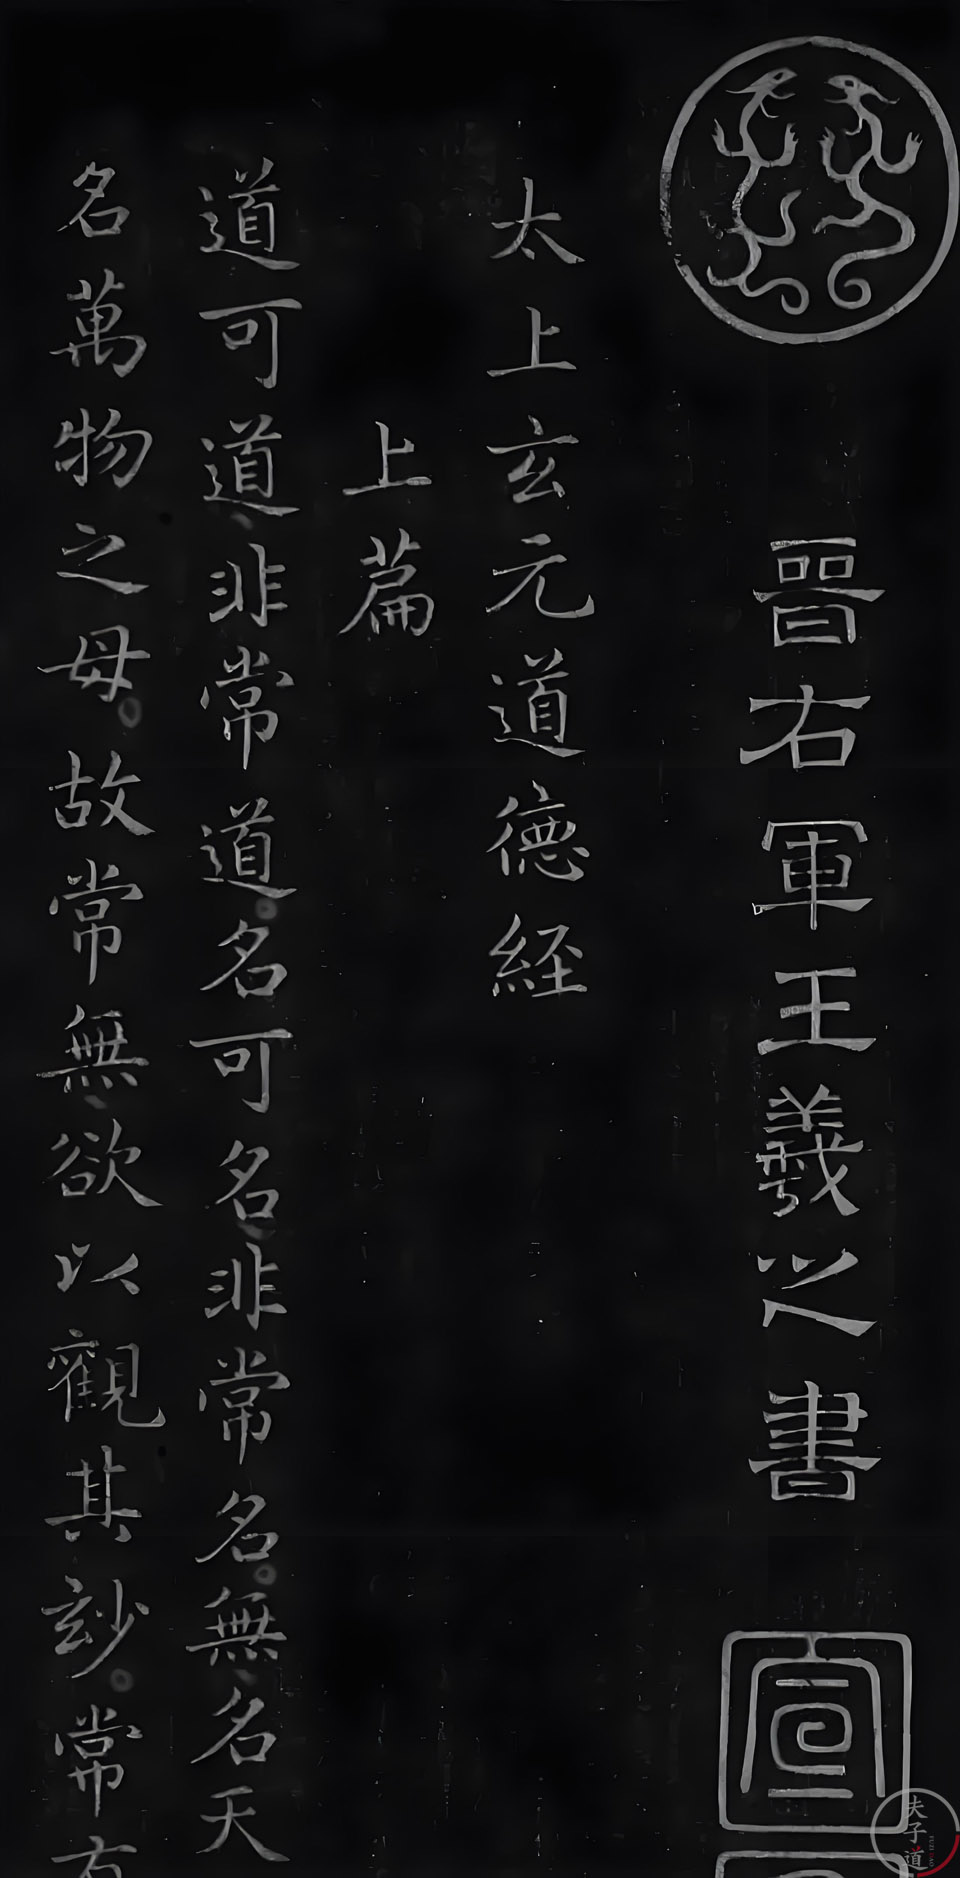 晉右軍王羲之書
宣
太上玄元道德經
上篇
道可道、非常道。名可名、非常名。無、名天
名萬物之母。故常無、欲以觀其玅。常
夫子道